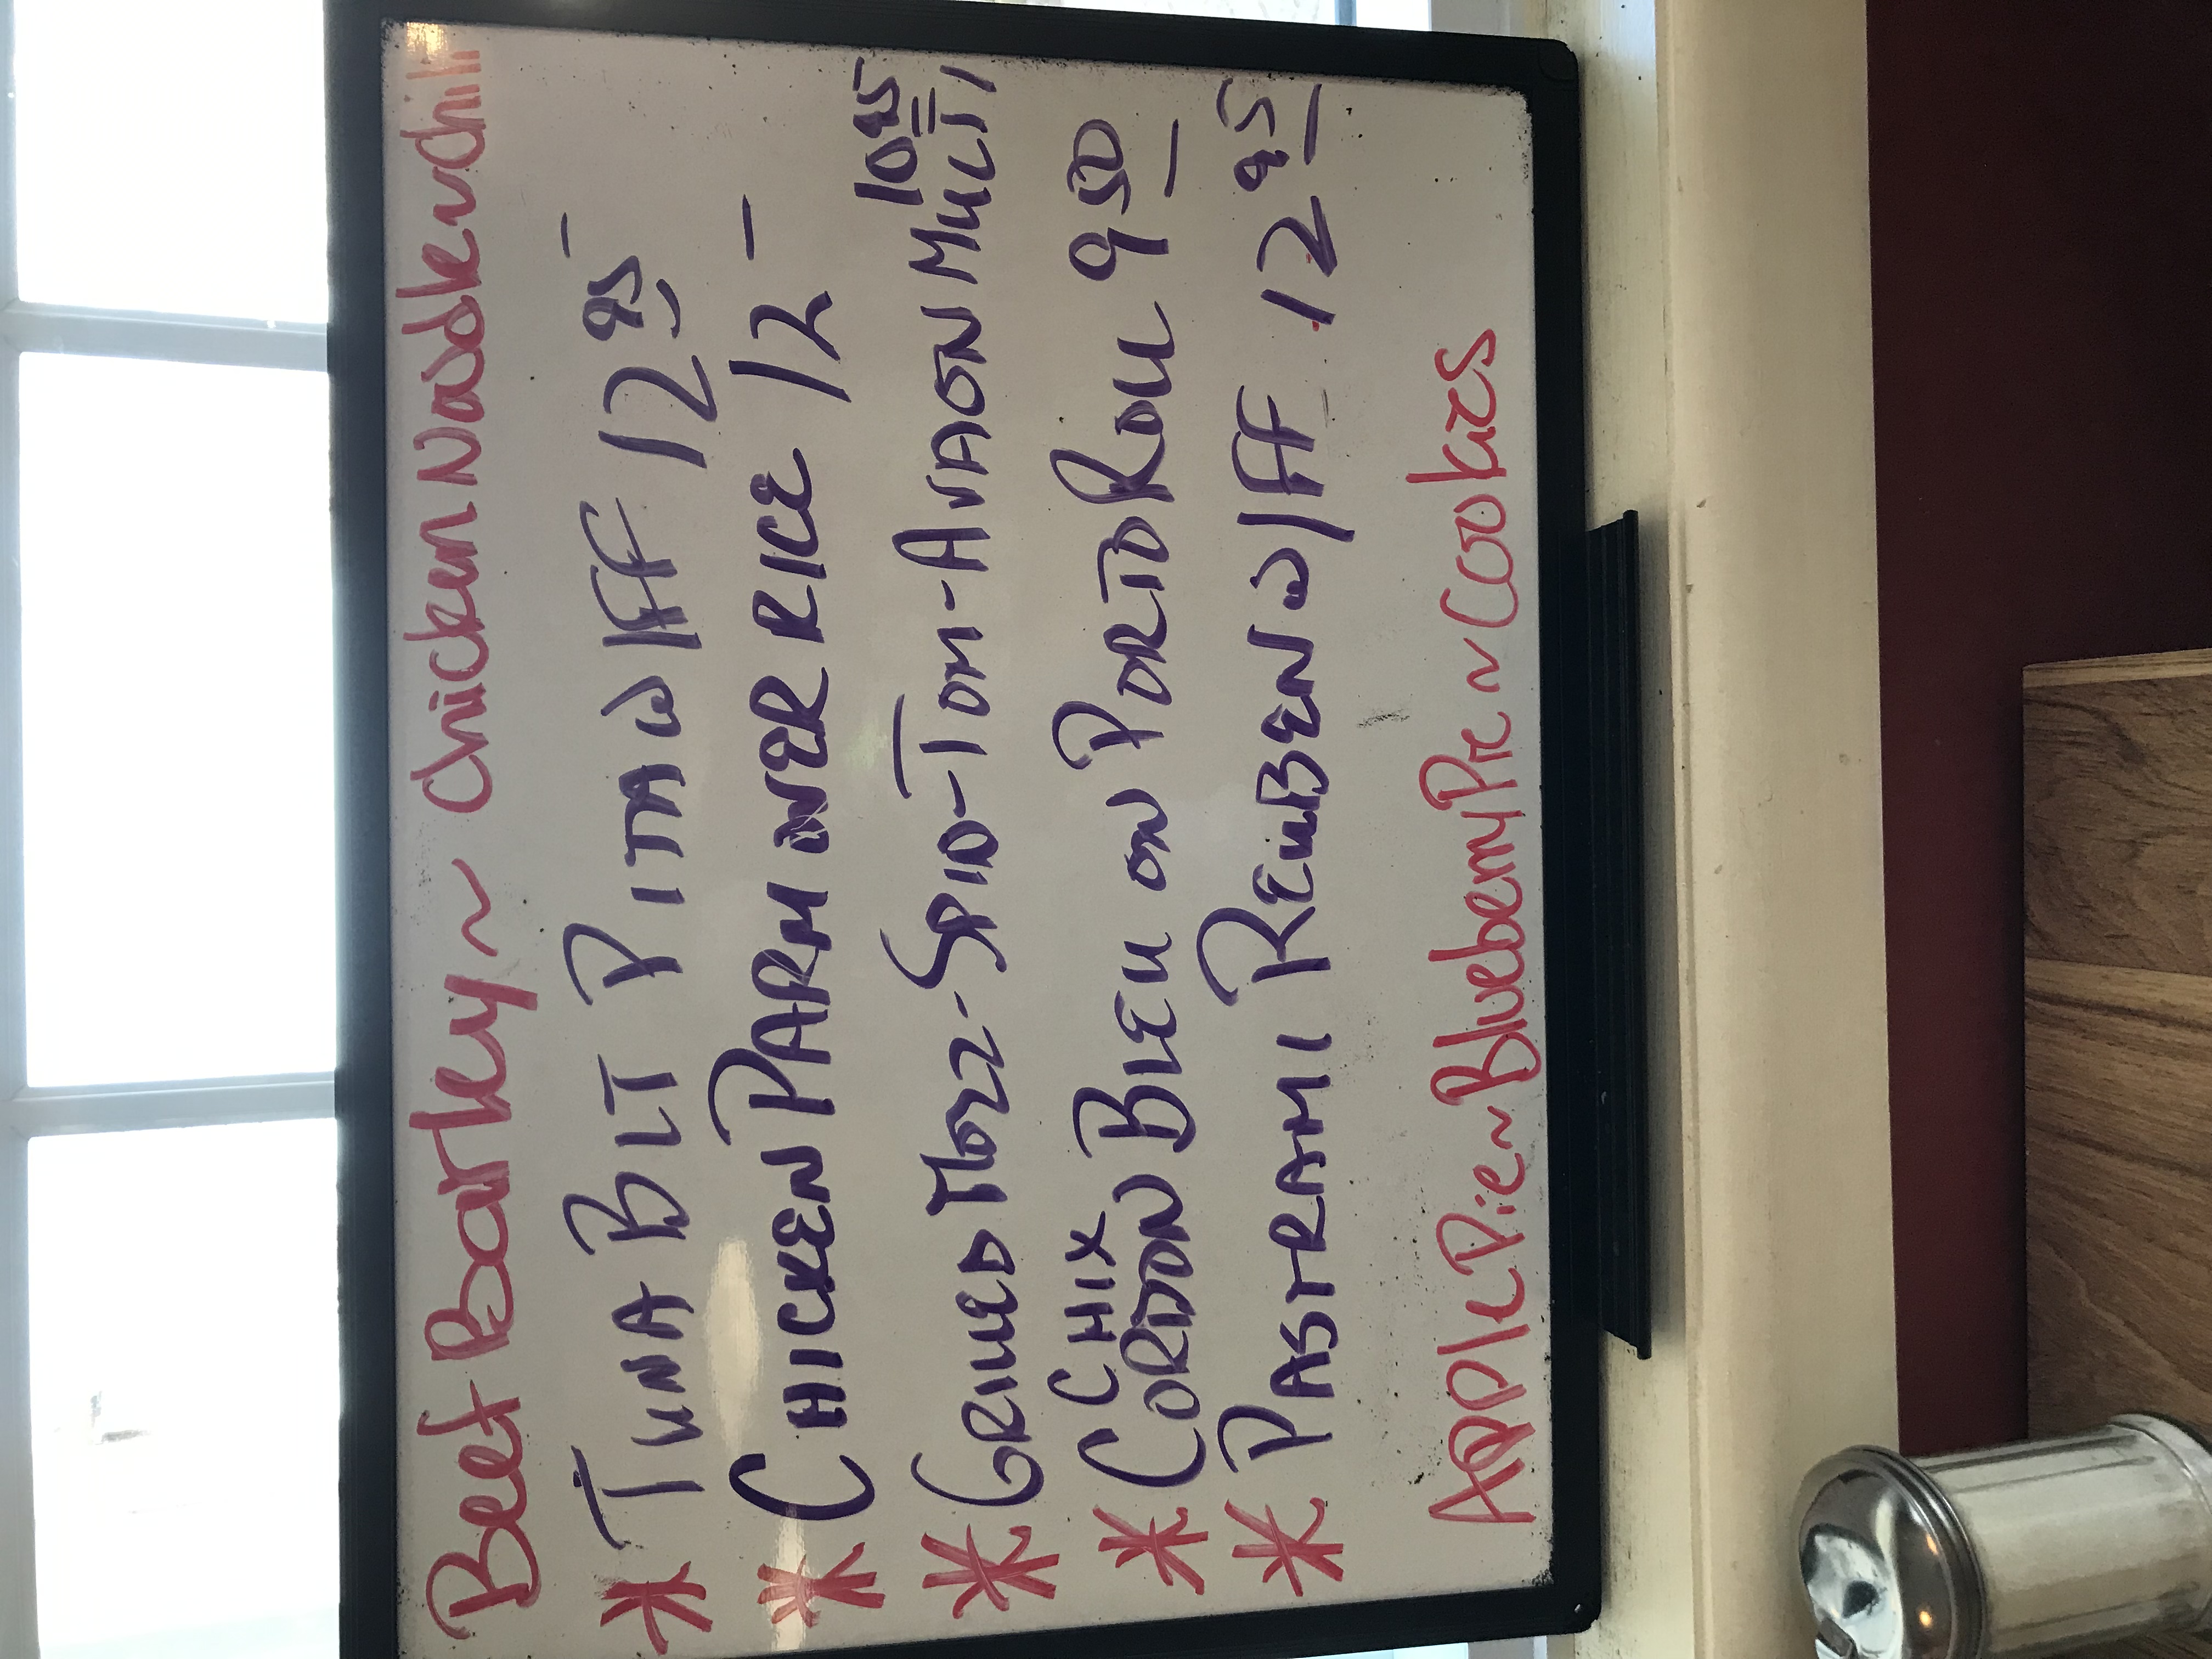 Beef Barley ~ Chicken Noodle ~ Chili
* TUNA BLT PITA W/FF 12 95
* CHICKEN PARM OVER RICE 12 -
* GRILLED MOZZ - SPIN - TOM - AVA ON MULTI 10 95
* CHIX CORDON BLEU ON PORTO ROLL 9 50
* PASTRAMI REUBEN W/FF 12 95
Apple Pie ~ Blueberry Pie ~ Cookies